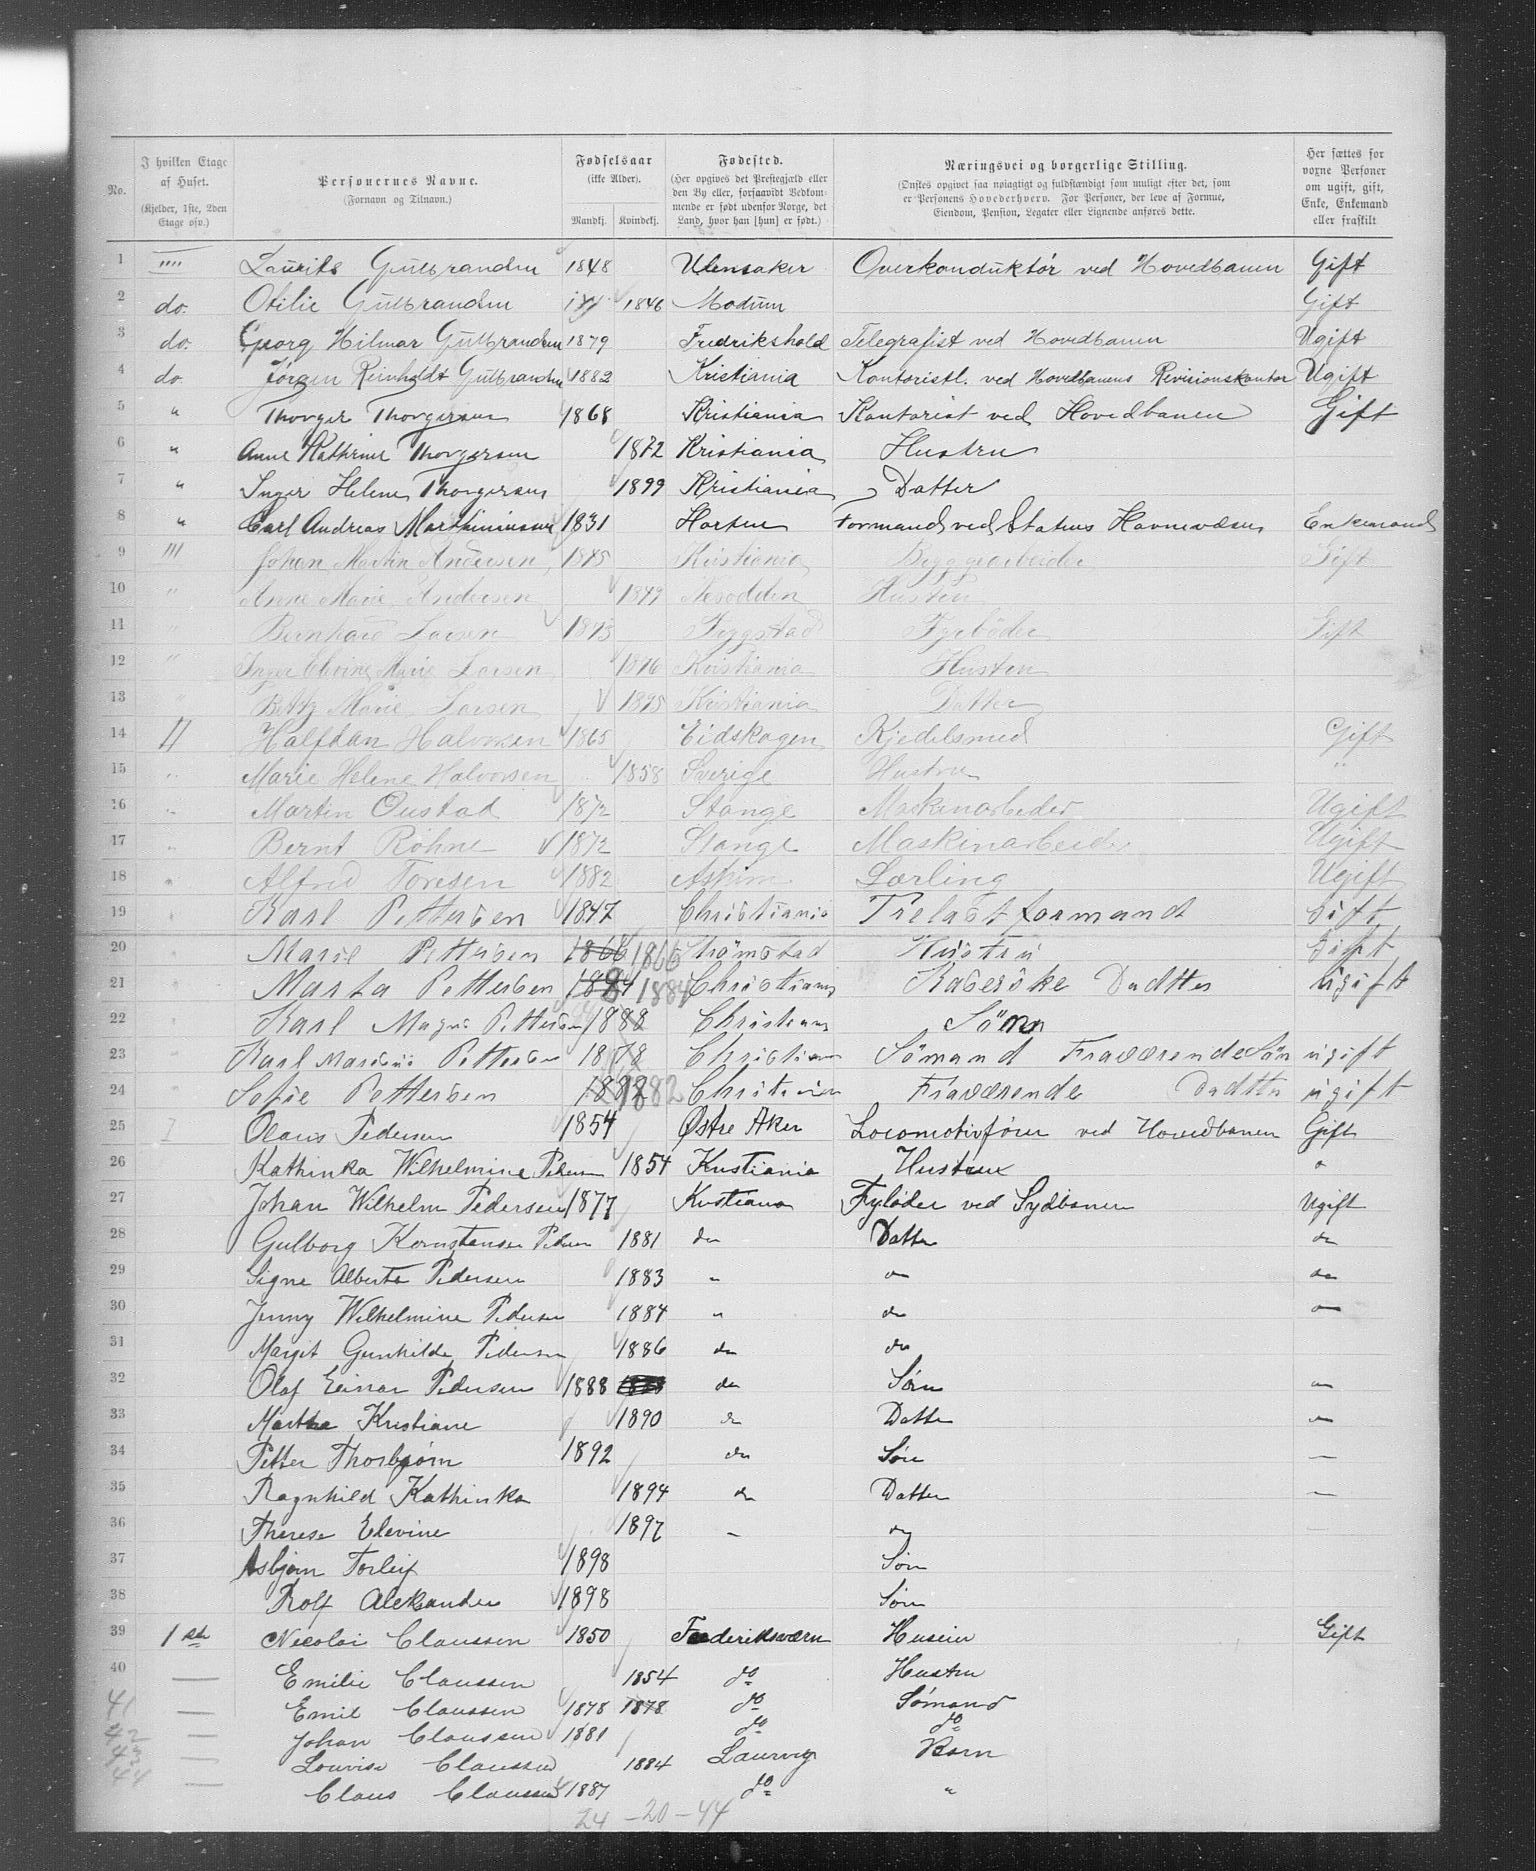 No.
I hvilken Etage af Huset. (Kjelder, 1ste, 2den Etage osv.)
Personernes Navne. (Fornavn og Tilnavn.)
Fødselsaar (ikke Alder). Mandkj. Kvindekj.
Fødested. (Her opgives det Prestegjæld eller den By eller, forsaavidt Vedkommende er født udenfor Norge, det Land, hvor han [hun] er født.)
Næringsvei og borgerlige Stilling. (Ønskes opgivet saa nøiagtigt og fuldstændigt som muligt efter det, som er Personens Hovederhverv. For Personer, der leve af Formue, Eiendom, Pension, Legater eller Lignende anføres dette.
Her sættes for voxne Personer om ugift, gift, Enke, Enkemand eller fraskilt
1 """" Laurits Gulbrandsen 1848 Ulensaker Overkonduktør ved Hovedbanen Gift
2 do. Otilie Gulbrandsen 1846 Modum Gift
3 do. Georg Hilmar Gulbrandsen 1879 Fredrikshald Telegrafist ved Hovedbanen Ugift
4 do Jørgen Reinholdt Gulbrandsen 1882 Kristiania Kontorist. ved Hovedbanens Revisionskontor Ugift
5 " Thorger Thorgersen 1868 Kristiania Kontorist ved Hovedbanen Gift
6 " Anne Kathrine Thorgersen 1872 Kristiania Hustru
7 " Inger Helene Thorgersen 1899 Kristiania Datter
8 " Carl Andreas Marthiniussen 1831 Horten Formand ved Statens Havnevæsen Enkemand
9 III Johan Martin Andersen 1845 Kristiania Byggearbeider Gift
10 " Anne Marie Andersen 1849 Nesodden Hustru
11 " Bernhard Larsen 1873 Trygstad Fyrbøder Gift
12 " Inger Marie Larsen 1876 Kristiania Hustru
13 " Marie Larsen 1895 Kristiania Datter
14 II Halfdan Halvorsen 1865 Eidskogen Kjedelsmed Gift
15 " Marie Helene Halvorsen 1858 Sverige Hustru "
16 " Martin Oustad 1872 Stange Maskinarbeider Ugift
17 " Bernt Røhne 1872 Stange Maskinarbeider Ugift
18 " Alfred Toresen 1882 Askim Lærling Ugift
19 " Karl Pettersen 1847 Christiania Trelastformand Gift
20 " Marie Pettersen 1866 1866 Strømstad Hustru Gift
21 " Marta Pettersen 1884 1884 Christiania Datter ugift
22 " Karl Magnus Pettersen 1888 Christiania Sønn
23 " Karl Pettersen 1878 Christiania Sømand Fraværende Søn ugift
24 " Sofie Pettersen 1882 1882 Christiania Fraværende Dadtter ugift
25 I Olaus Pedersen 1854 Østre Aker Locomotivfører ved Hovedbanen Gift
26 Kathinka Wilhelmine Pedersen 1854 Kristiania Hustrue "
27 Johan Wilhelm Pedersen 1877 Kristiania Fyrbøder ved Sydbanen Ugift
28 Gulborg Konstanse Pedersen 1881 do Datter do
29 Signe Alberta Pedersen 1883 " do do
30 Jenny Wilhelmine Pedersen 1884 " do do
31 Margit Gunhilde Pedersen 1886 do do
32 Olaf Einar Pedersen 1888 do Søn do
33 Martha Kristiane 1890 do Datter do
34 Petter Thorbjørn 1892 do Søn —
35 Ragnhild Kathinka 1894 do Datter —
36 Therese Elevine 1897 – do
37 Asbjørn Torleif 1898 Søn
38 Rolf Aleksander 1898 Søn
39 1ste Nicolai Claussen 1850 Frederiksværn Huseier Gift
40 — Emilie Claussen 1854 do Hustru
41 — Emil Claussen 1878 1878 do Sømand
42 — Johan Claussen 1881 do do
43 — Lovise Claussen 1884 Laurvig Barn
44 — Claus Claussen 1887 do "
24 – 20 – 44